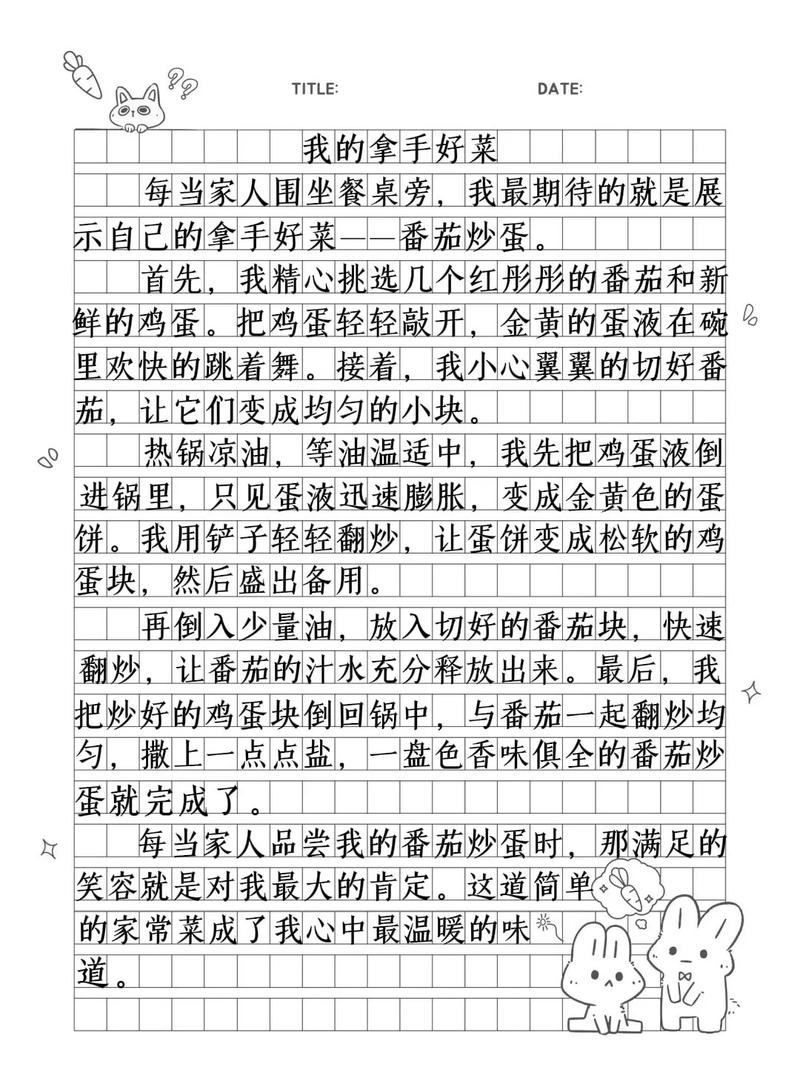 TITLE: DATE:
我的拿手好菜
每当家人围坐餐桌旁，我最期待的就是展
示自己的拿手好菜——番茄炒蛋。
首先，我精心挑选几个红彤彤的番茄和新
鲜的鸡蛋。把鸡蛋轻轻敲开，金黄的蛋液在碗
里欢快的跳着舞。接着，我小心翼翼的切好番
茄，让它们变成均匀的小块。
热锅凉油，等油温适中，我先把鸡蛋液倒
进锅里，只见蛋液迅速膨胀，变成金黄色的蛋
饼。我用铲子轻轻翻炒，让蛋饼变成松软的鸡
蛋块，然后盛出备用。
再倒入少量油，放入切好的番茄块，快速
翻炒，让番茄的汁水充分释放出来。最后，我
把炒好的鸡蛋块倒回锅中，与番茄一起翻炒均
匀，撒上一点点盐，一盘色香味俱全的番茄炒
蛋就完成了。
每当家人品尝我的番茄炒蛋时，那满足的
笑容就是对我最大的肯定。这道简单
的家常菜成了我心中最温暖的味
道。